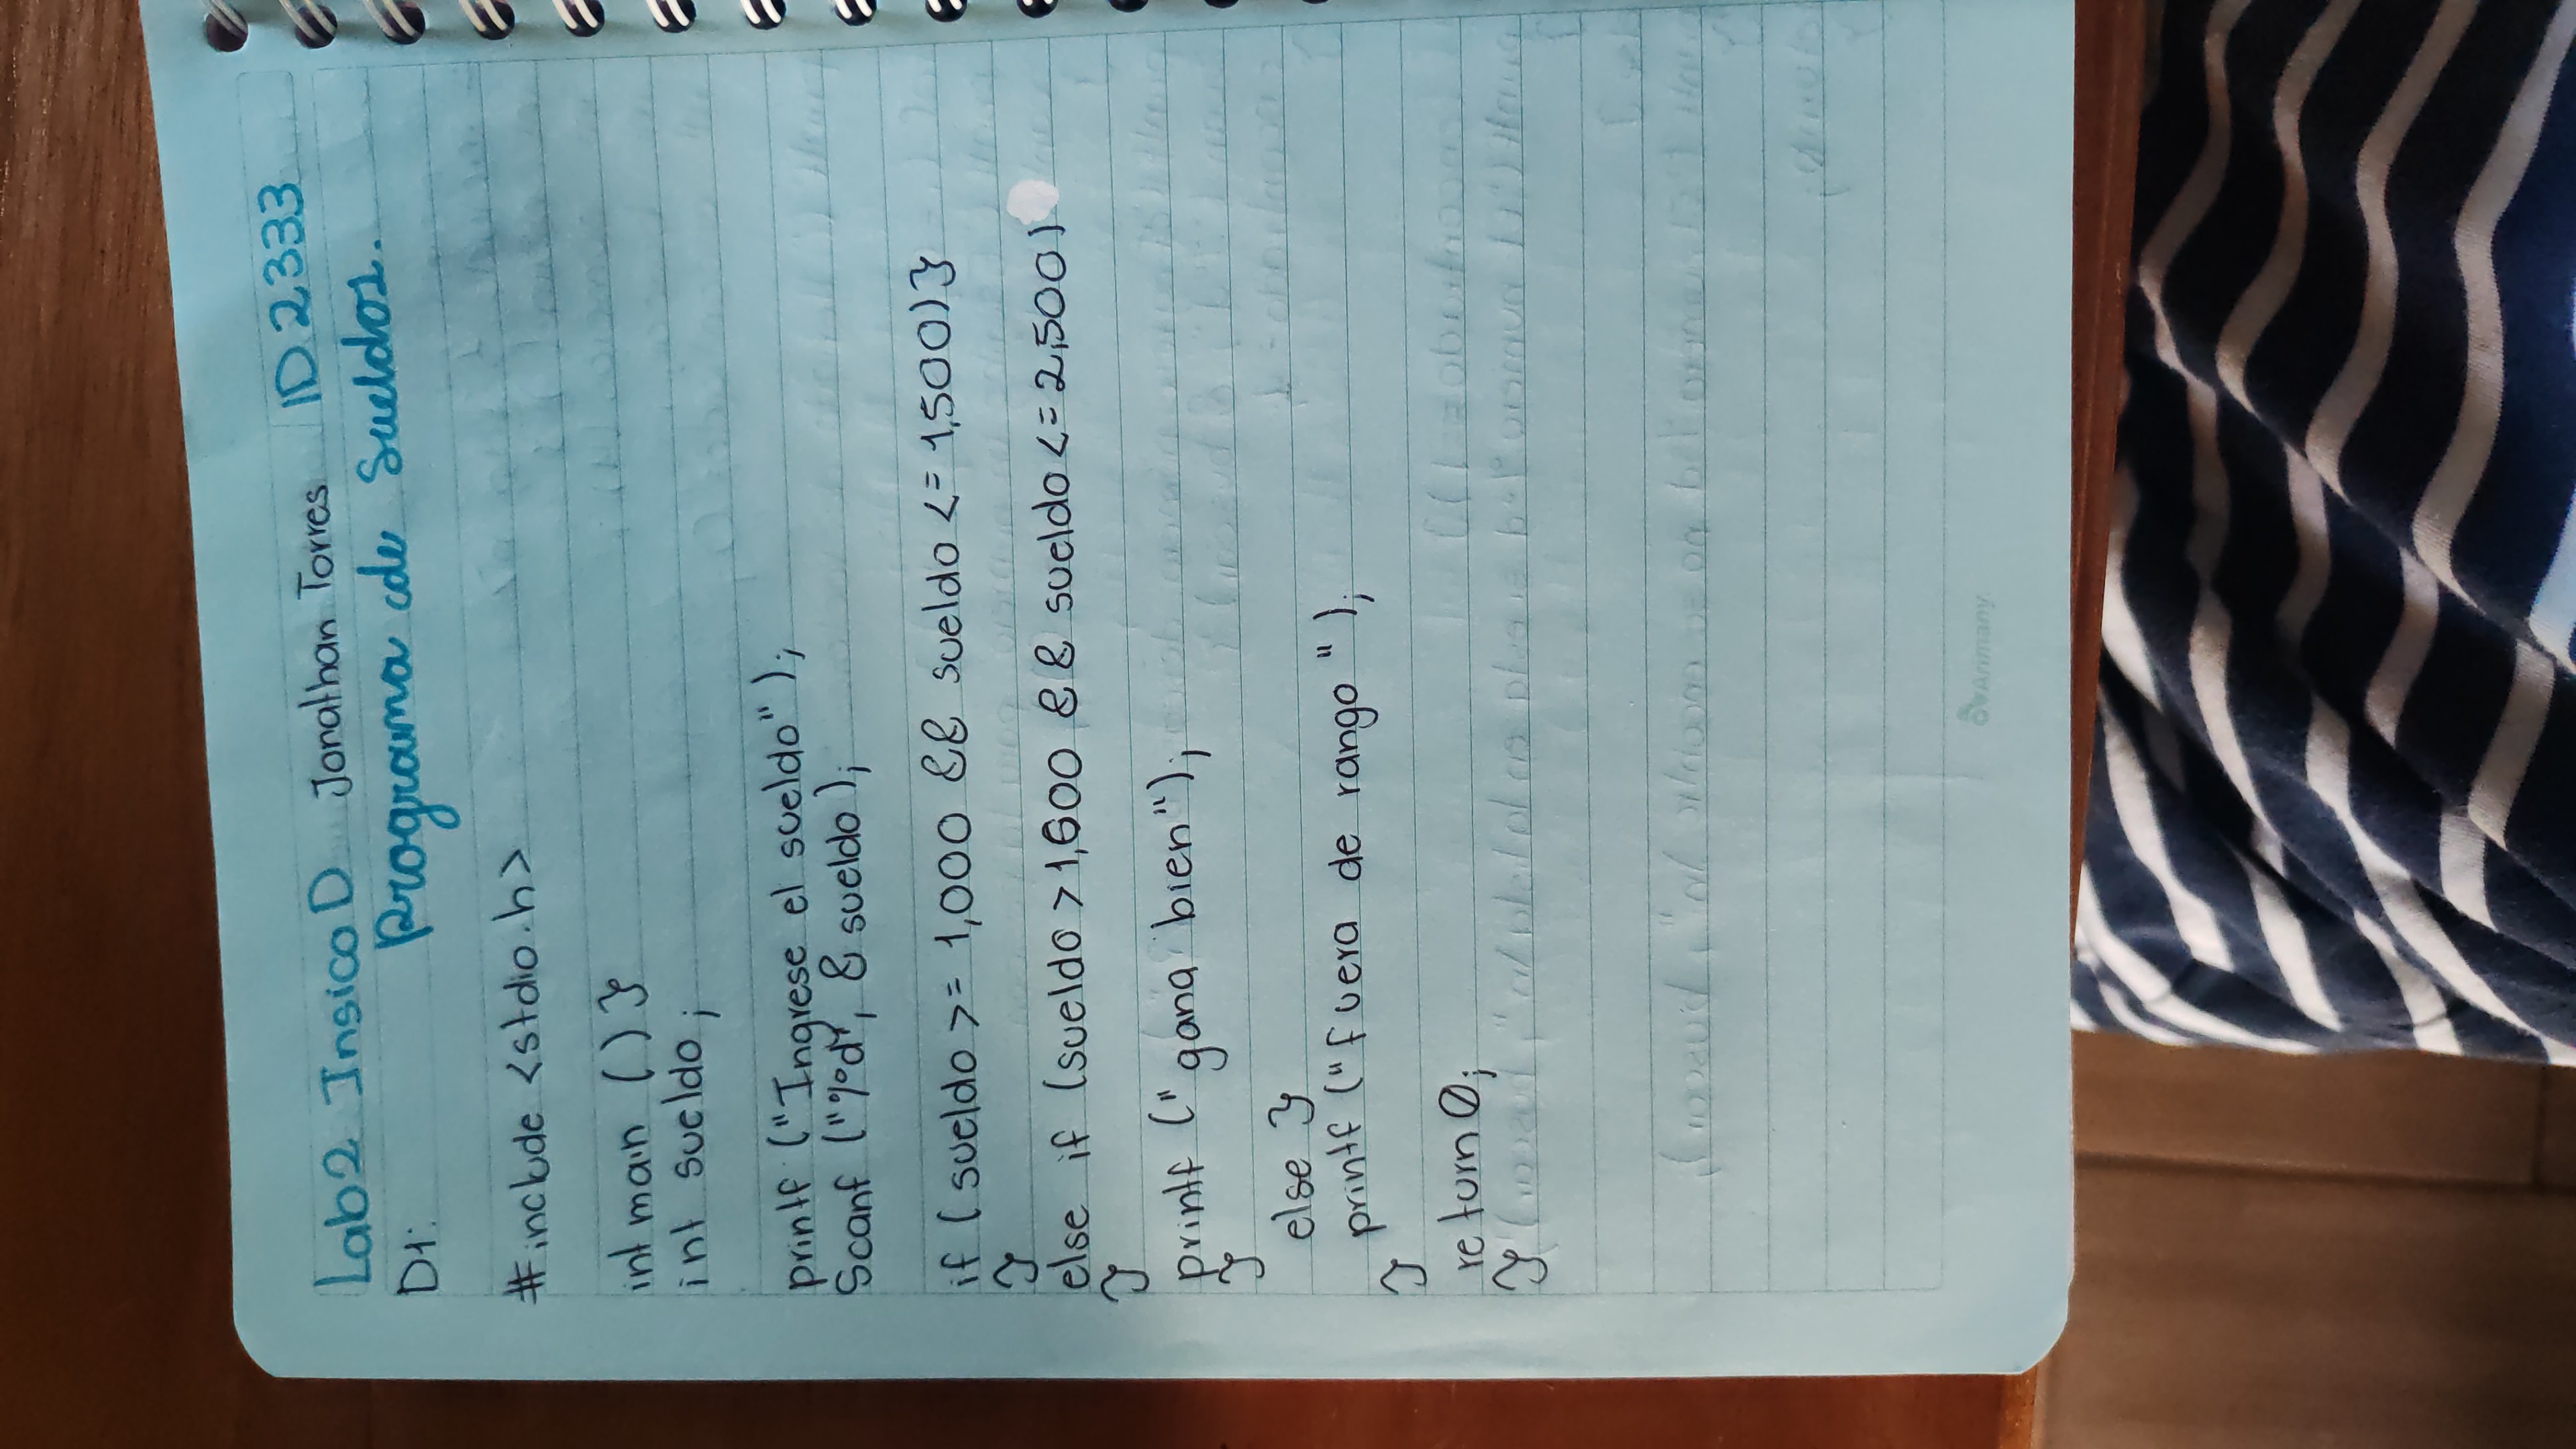 Lab2 Insico D Jonathan Torres ID2333
D1: programa de Sueldos.
#include <stdio.h>
int main () }
int sueldo;
printf ("Ingrese el sueldo");
Scanf ("%d", & sueldo);
if (sueldo >= 1,000 && sueldo <= 1,500) }
}
else if (sueldo > 1,600 && sueldo <= 2,500)
}
printf ("gana bien");
}
else }
printf ("fuera de rango");
}
return 0;
}
Anmany